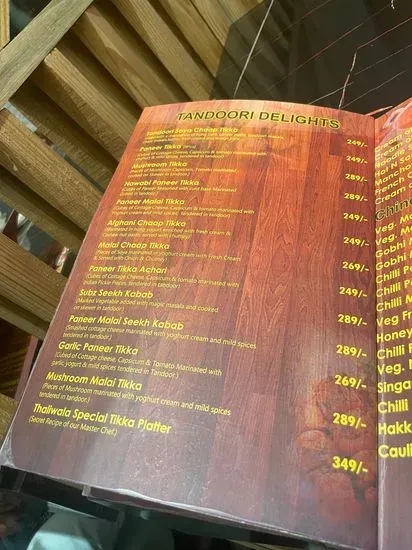 TANDOORI DELIGHTS
Tandoori Soya Chaap Tikka
249/-
Paneer Tikka
(Cubes of Cottage Cheese, Capsicum & tomato marinated with
Yoghurt & mild spices, tendered in tandoor)
249/-
Mushroom Tikka
(Pieces of Mushroom Capsicum, Tomato marinated
cooked on Skewer in tandoor)
289/-
Nawabi Paneer Tikka
(Cubes of Paneer Seasoned with curd base Marinated
tendered in tandoor)
249/-
Paneer Malai Tikka
(Cubes of Cottage Cheese, Capsicum & tomato marinated with
Yoghurt cream and mild spices, tendered in tandoor)
289/-
Afghani Chaap Tikka
(Marinated in hung yogurt enriched with fresh cream &
Cashew nut paste, served with chutney)
249/-
Malai Chaap Tikka
(Pieces of Soya marinated in yoghurt with Fresh Cream
& Served with Onion & Chutney)
249/-
Paneer Tikka Achari
(Cubes of Cottage Cheese, Capsicum & tomato marinated with
Indian Pickle Pieces, tendered in tandoor)
269/-
Subz Seekh Kabab
(Mashed Vegetable added with magic masala and cooked
on skewer in tandoor)
249/-
Paneer Malai Seekh Kabab
(Smashed cottage cheese marinated with yoghurt cream and mild spices
tendered in tandoor.)
289/-
Garlic Paneer Tikka
(Cubes of Cottage cheese, Capsicum & Tomato Marinated with
garlic, yogurt & mild spices tendered in Tandoor.)
289/-
Mushroom Malai Tikka
(Pieces of Mushroom marinated with yoghurt cream and mild spices
tendered in tandoor.)
269/-
Thaliwala Special Tikka Platter
(Secret Recipe of our Master Chef.)
289/-
349/-
Cream
French
Cream
Chin
Veg.
Veg. M
Gobhi
Gobhi
Chilli
Chilli P
Veg Fr
Honey
Chilli P
Veg.
Singa
Chilli
Hakk
Cauli